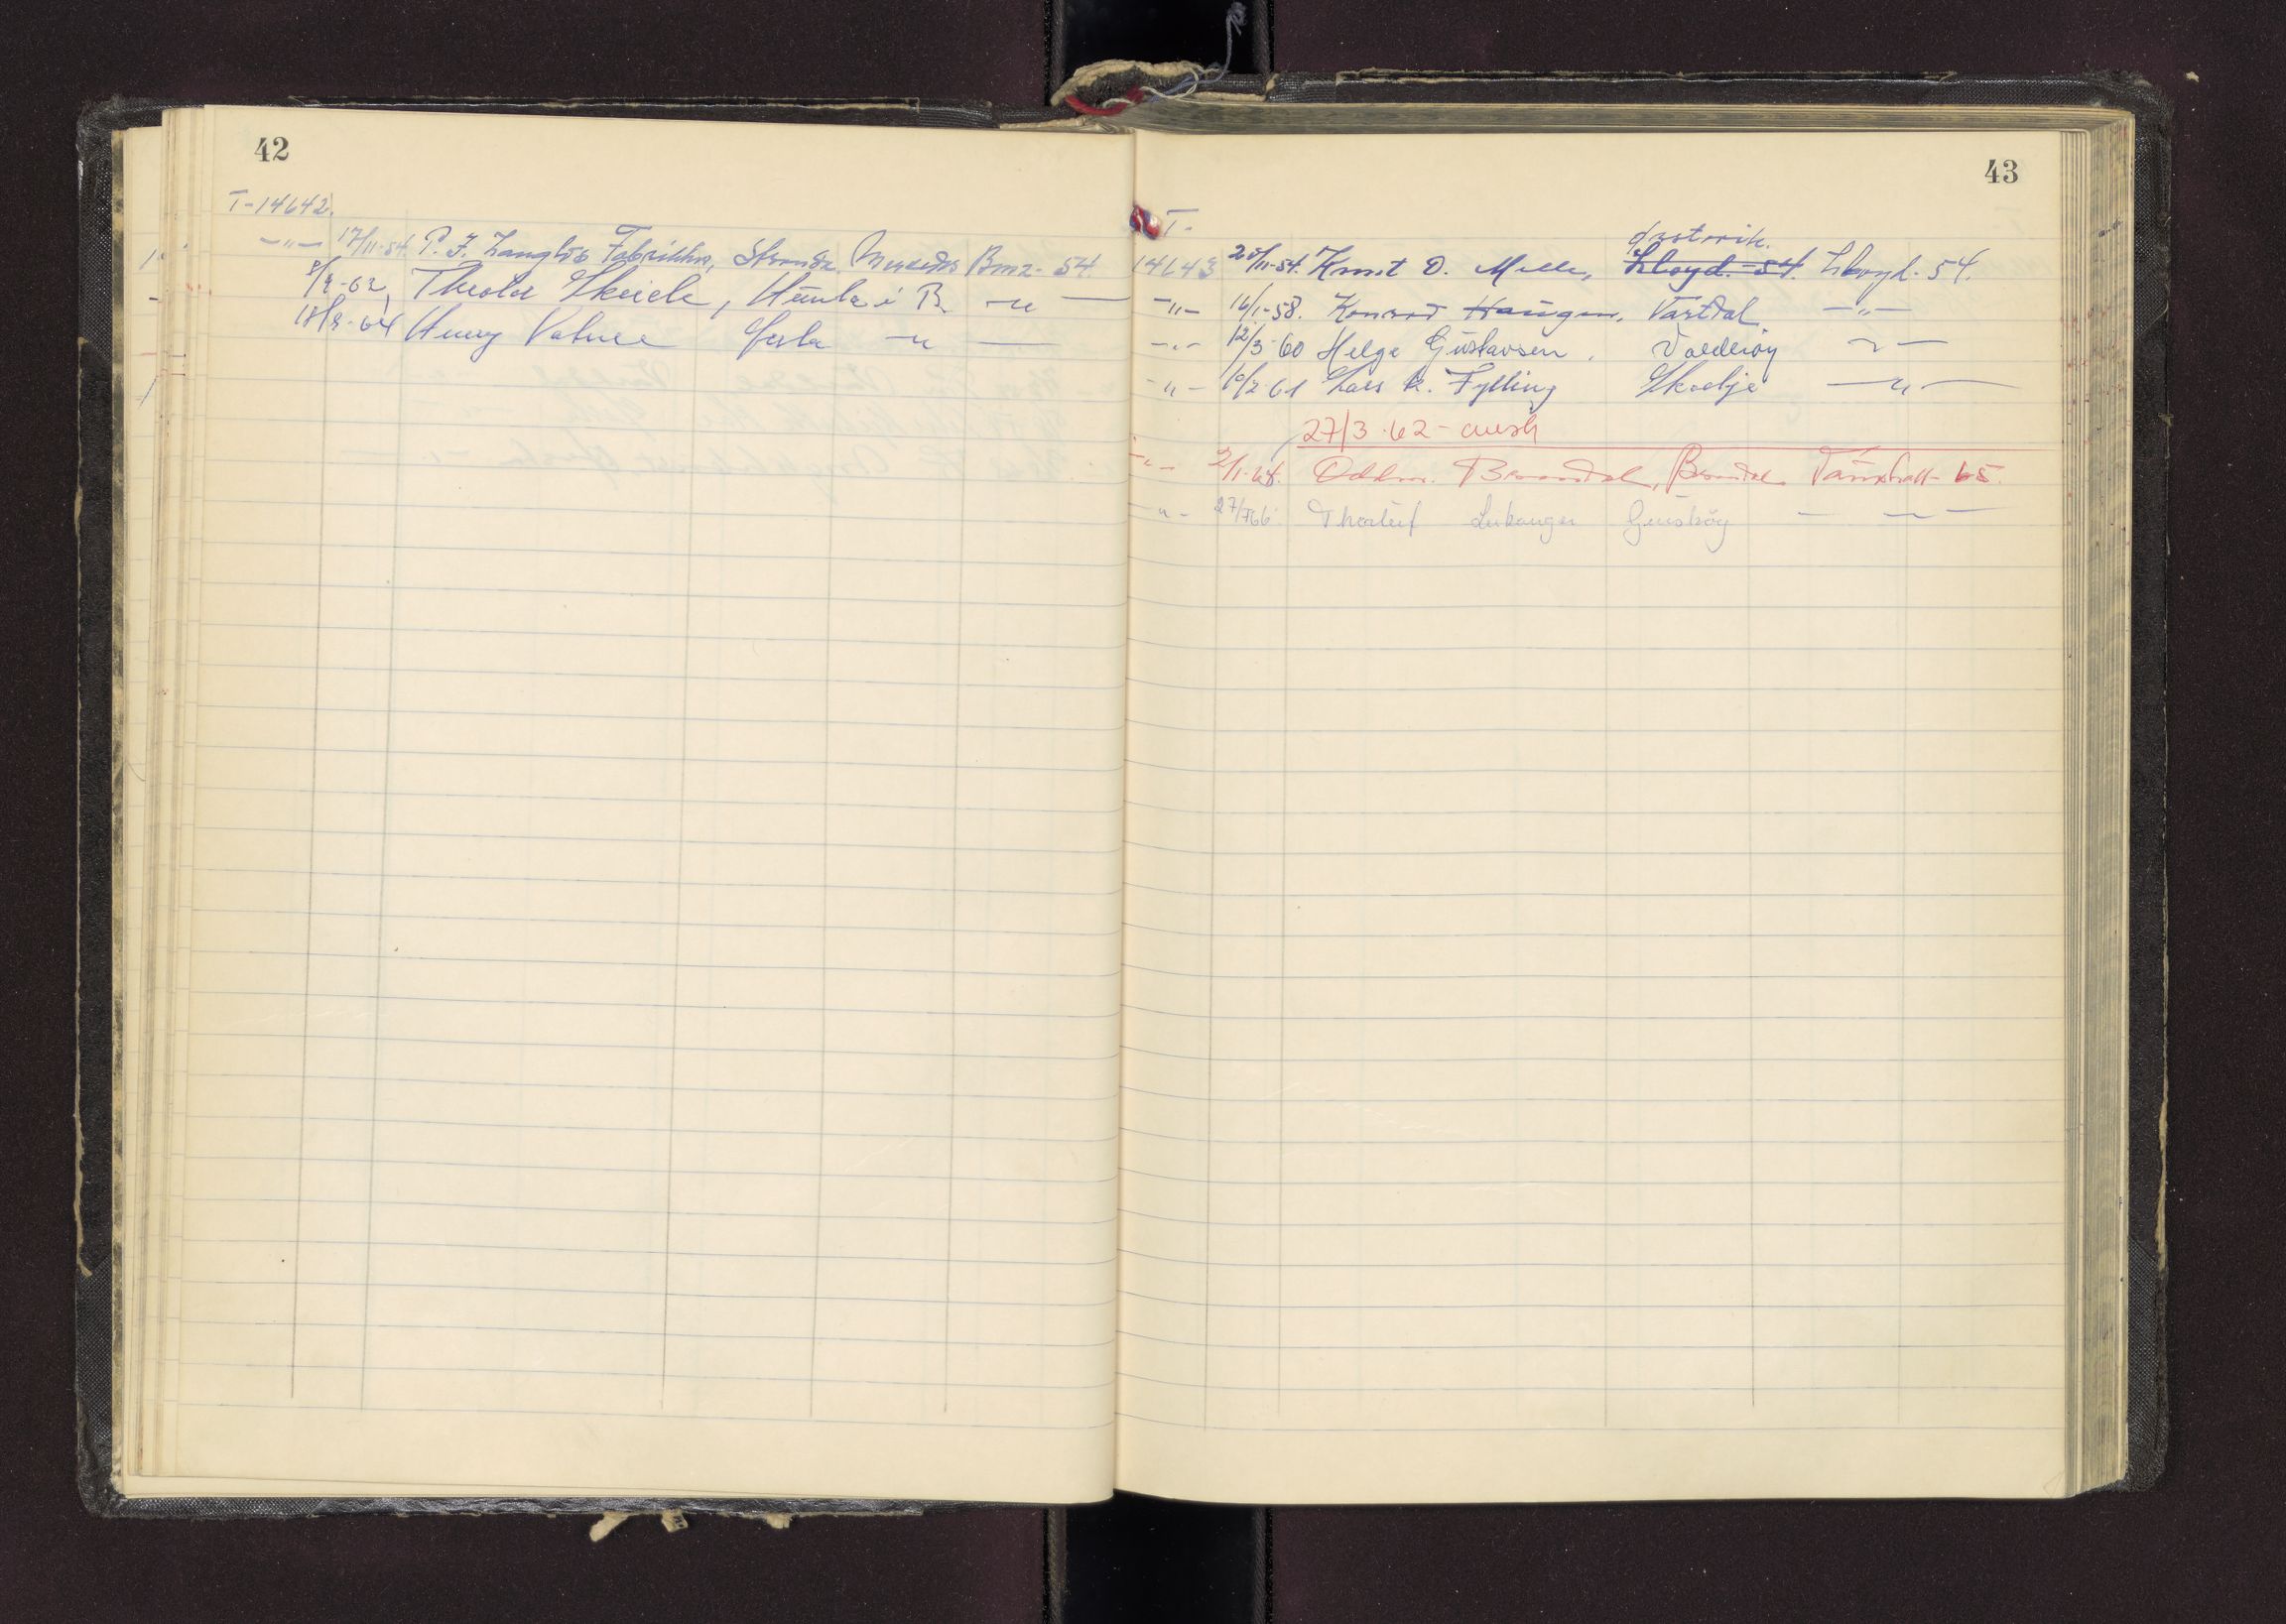 42
T-14642.
-"- 17/11-54. P. I. Langlos Fabrikker, Stranda. Mercedes Benz - 54
8/2-62, Theodor Skeide, Humla i B. -"-
18/8-64 Henry Vatne Ørsta -"-
43
T-
Ørstavik.
14643 25/11-54. Knut O. Melle, Lloyd.-54. Lloyd - 54.
-"- 16/1-58. Konrad Haugen, Vartdal -"-
-"- 12/3 60 Helge Gustavsen. Valderøy -"-
-"- 10/2 61 Lars K. Fylling Skodje -"-
27/3 62 -
-"- 2/1-68. Oddm. Brandal, Brandal Vauxhall - 65.
-"- 27/7 66 Leikanger Gurskøy - -"-